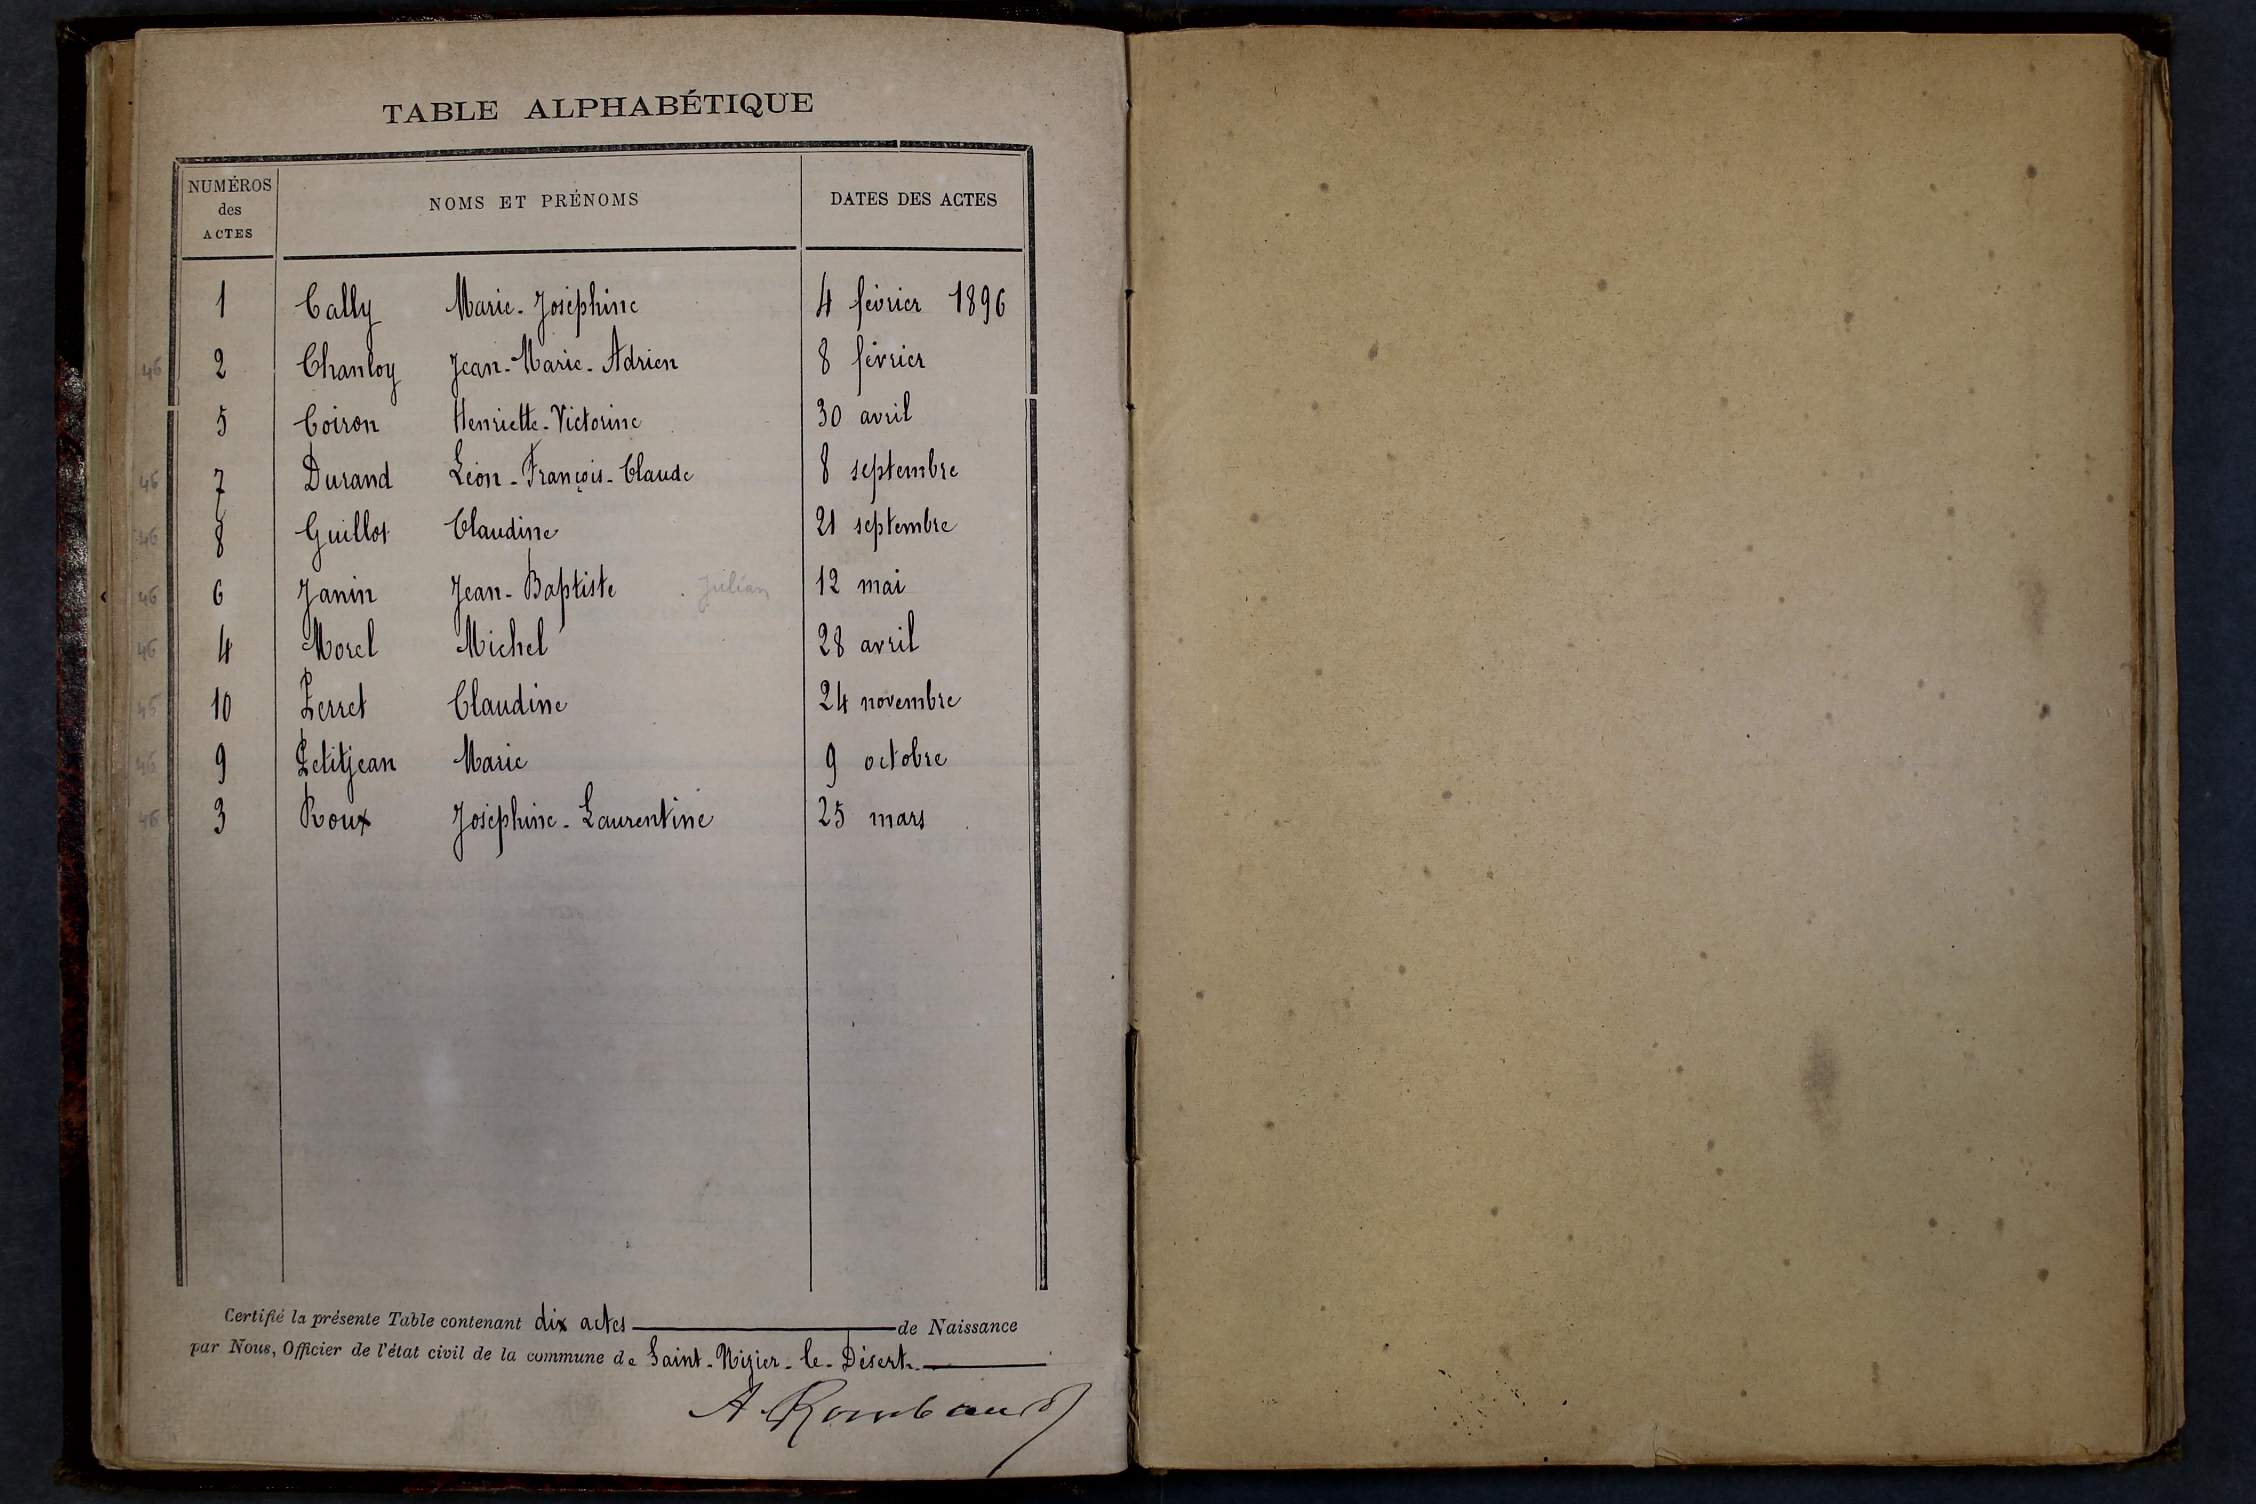 TABLE ALPHABÉTIQUE
NUMÉROS des ACTES NOMS ET PRÉNOMS DATES DES ACTES
1 Cally Marie-Joséphine 4 février 1896
46 2 Chanloy Jean-Marie-Adrien 8 février
5 Coiron Henriette-Victorine 30 avril
46 7 Durand Léon-François-Claude 8 septembre
46 8 Guillot Claudine 21 septembre
46 6 Janin Jean-Baptiste . Julian 12 mai
46 4 Morel Michel 28 avril
46 10 Perret Claudine 24 novembre
46 9 Petitjean Marie 9 octobre
46 3 Roux Joséphine-Laurentine 25 mars
Certifié la présente Table contenant dix actes de Naissance
par Nous, Officier de l'état civil de la commune de Saint-Nizier-le-Désert.
A. Rombaud